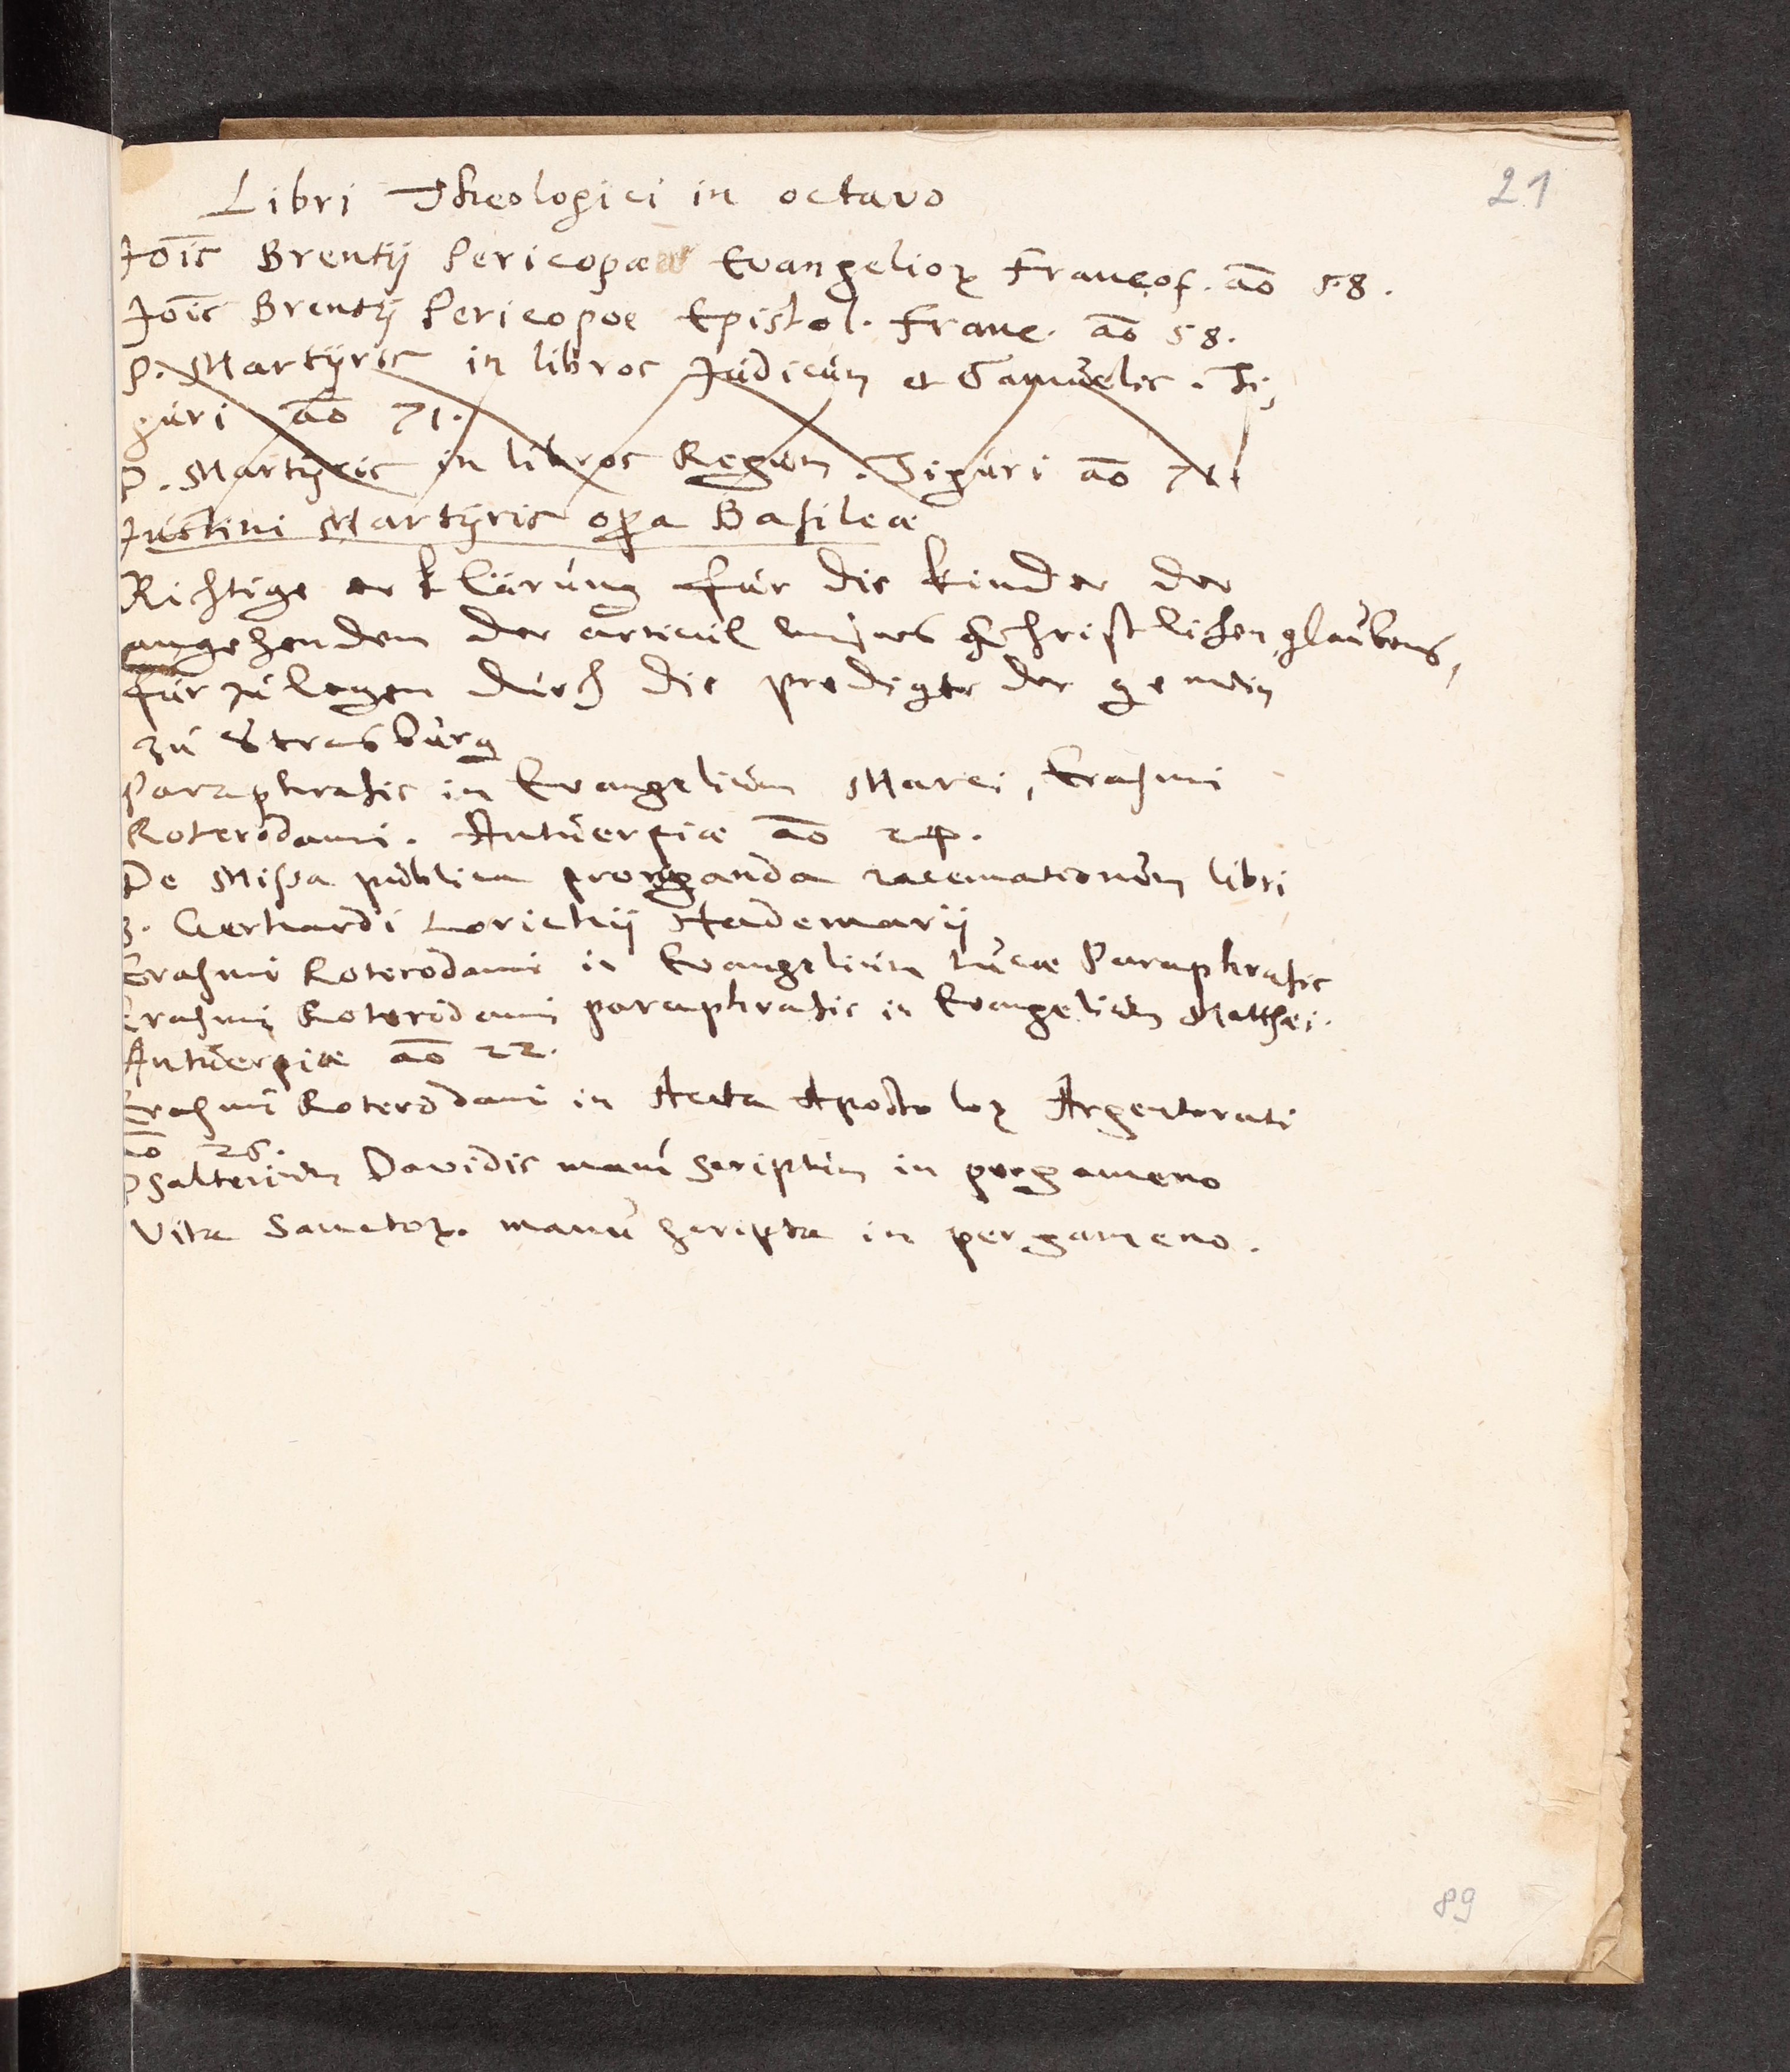 21
Libri Theologici in octavo
Jo͞is Brentij Pericopæ Evangelioꝝ Francof. a͞o 58.
Jo͞is Brentij Pericopoe Epistol. Franc. a͞o 58.
P. Martÿris in libros Judicum et Samuelis. Ti,
guri a͞o 71.
P. Martÿris in libros Regum. Tiguri a͞o 71
Justini Martÿris oꝑa Basileæ
Richtige erklärung für die kinder der
angehenden der articul unsers Christlichen glaubens,
für zu legen durch die prediger der gemein
zu Strasburg
Paraphrasis in Evangelium Marci, Erasmi
Roterodami. Antuerpiæ a͞o 24.
De Missa publica proroganda racemationum libri
3. Gerhardi Lorichij Hademarij
Erasmi Roterodami in Evangelium Lucæ Paraphrasis
Erasmi Roterodami paraphrasis in Evangelium Matthæi.
Antuerpiæ a͞o 22.
Erasmi Roterodami in Acta Apostoloꝝ Argentorati
a͞o 26.
Psalterium Davidis manu scriptum in pergameno
Vita Sanctoꝝ. manu scripta in pergameno.
89